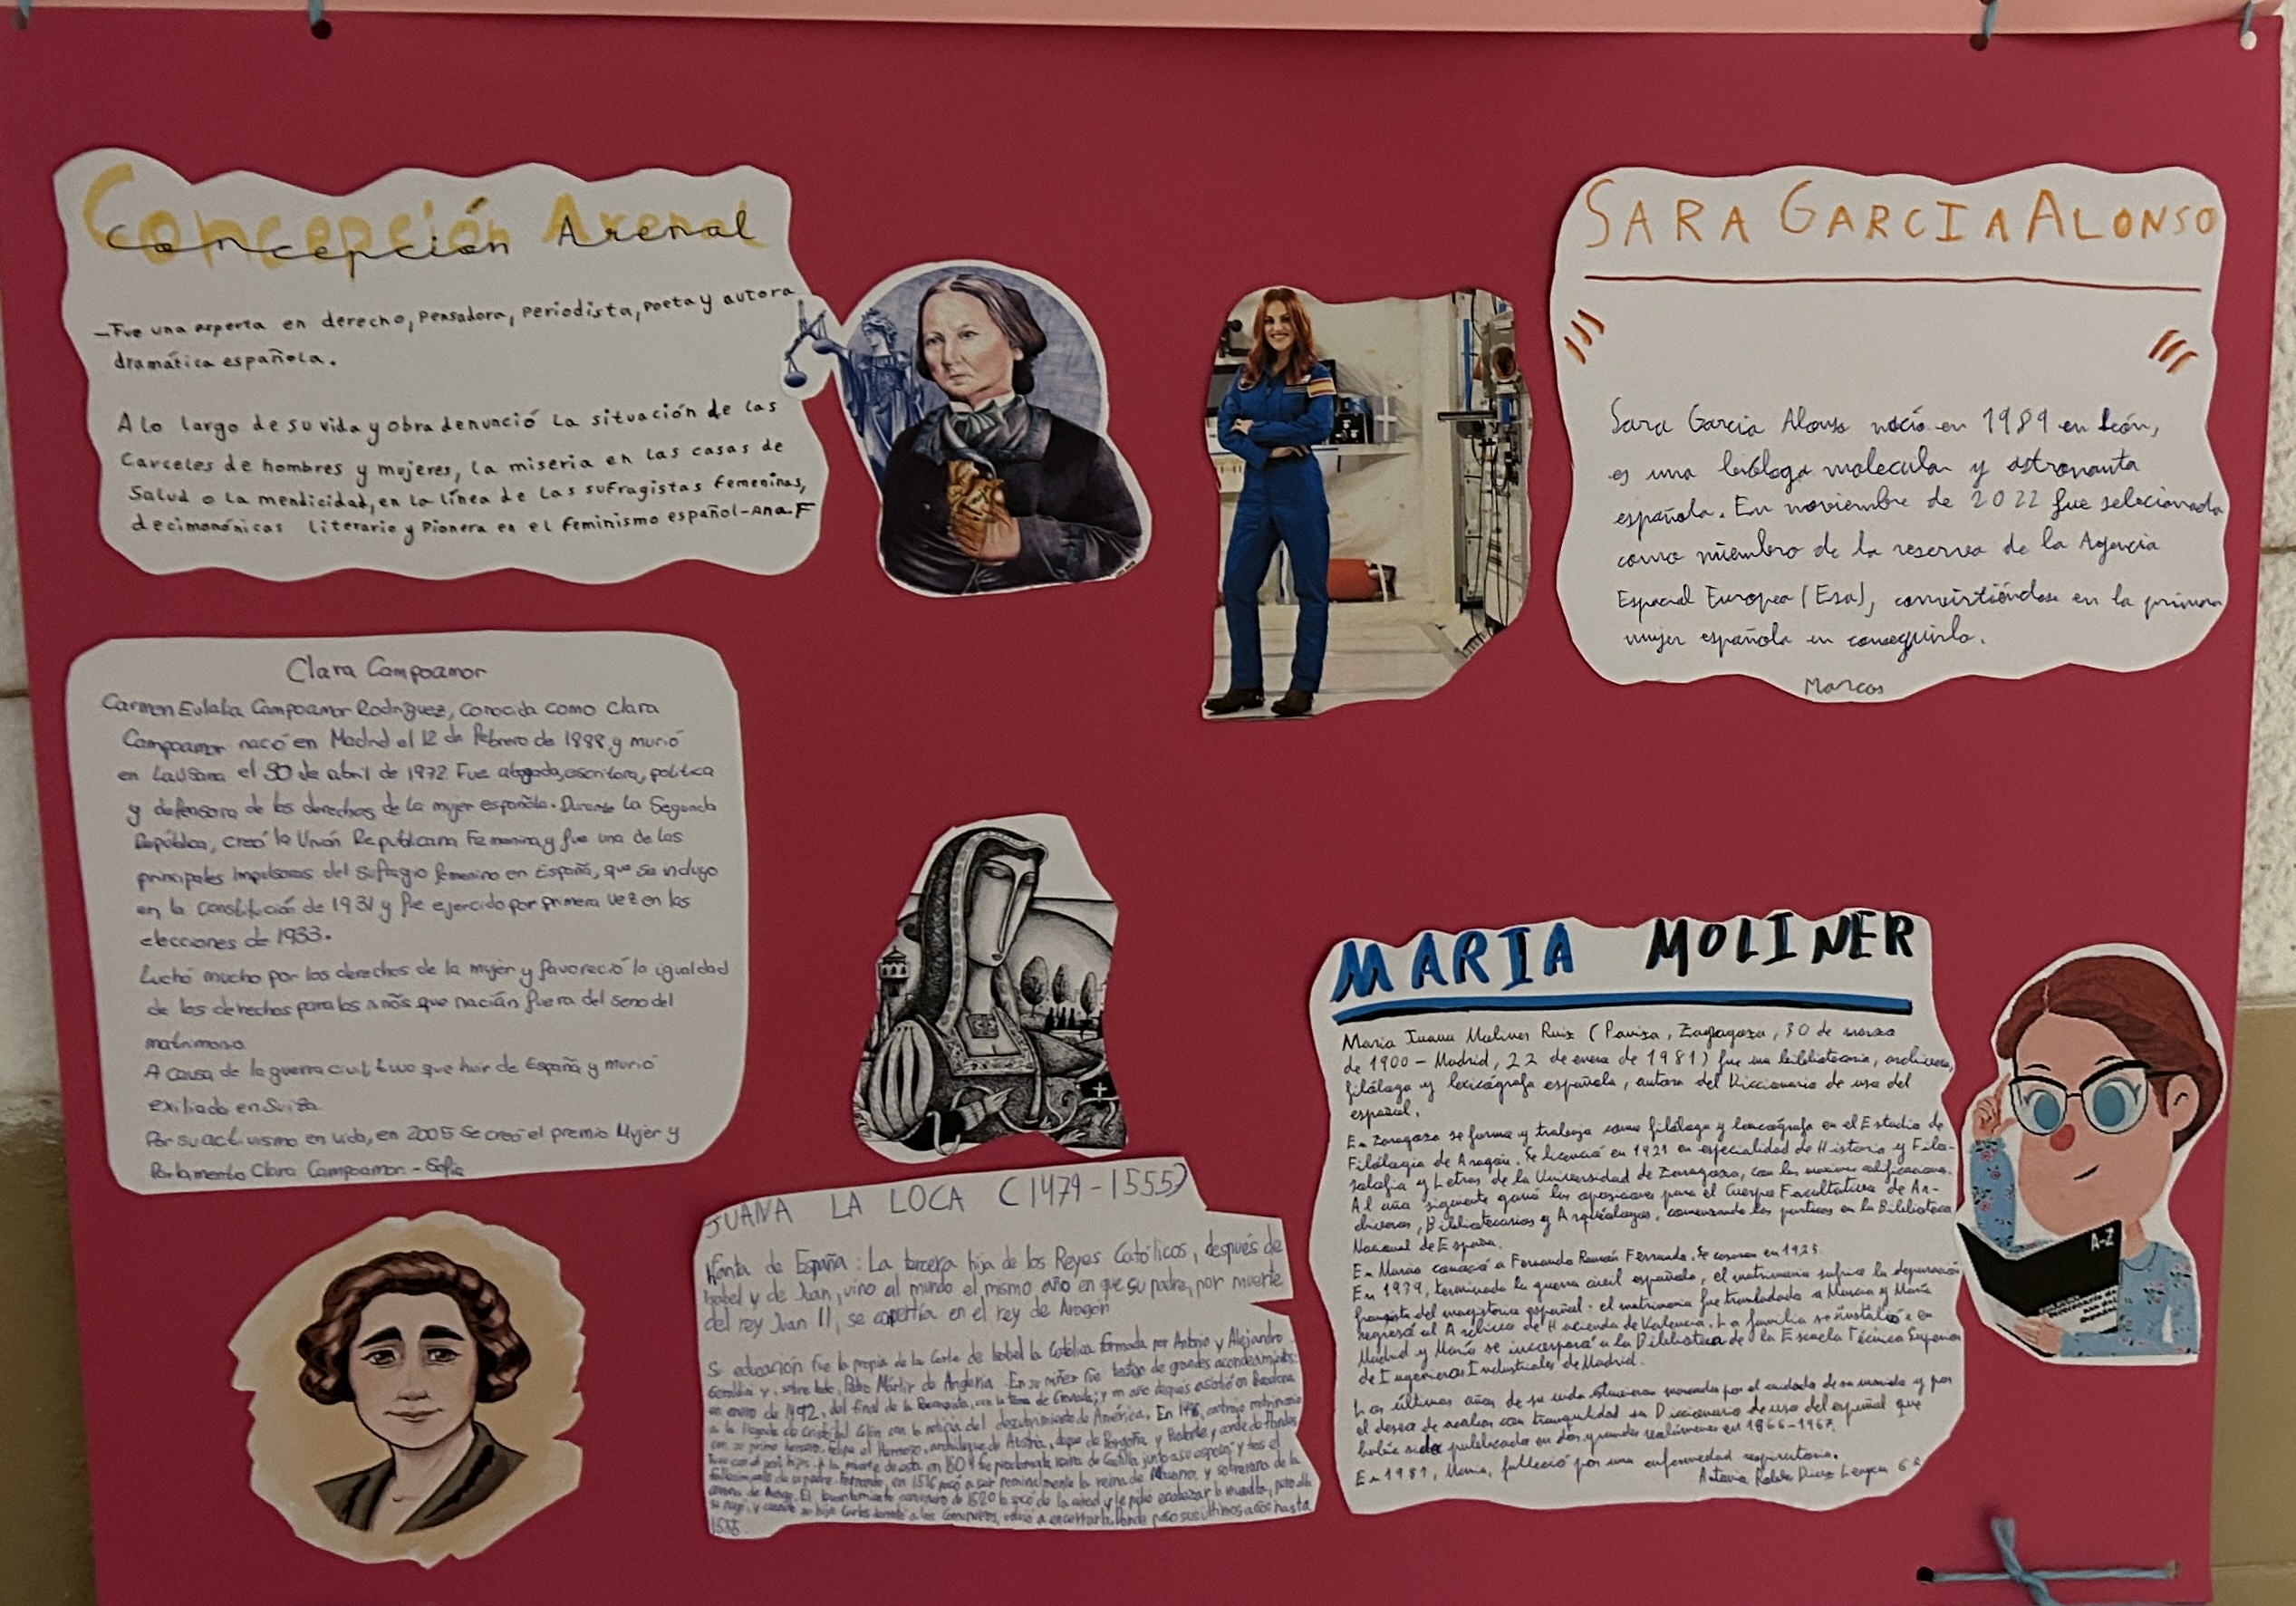 Concepción Arenal
Concepción Arenal
-Fue una experta en derecho, pensadora, periodista, poeta y autora
dramática española.
A lo largo de su vida y obra denunció la situación de las
Carceles de hombres y mujeres, la miseria en las casas de
Salud o la mendicidad, en la línea de las sufragistas femeninas,
decimonónicas literario y Pionera en el feminismo español-Ana.F
SARA GARCIA ALONSO
Sara Garcia Alonso nació en 1989 en León,
es una bióloga molecular y astronauta
española. En noviembre de 2022 fue selecionada
como miembro de la reserva de la Agencia
Espacial Europea (Esa), convirtiéndose en la primera
mujer española en conseguirlo.
Marcos
Clara Campoamor
Carmen Eulalia Campoamor Rodríguez, conocida como Clara
Campoamor nació en Madrid el 12 de febrero de 1888 y murió
en Lausana el 30 de abril de 1972 Fue abogada, escritora, política
y defensora de los derechos de la mujer española. Durante la Segunda
República, creó la Unión Republicana Femenina y fue una de las
principales impulsoras del sufragio femenino en España, que se incluyo
en la constitución de 1931 y fue ejercido por primera vez en las
elecciones de 1933.
Luchó mucho por los derechos de la mujer y favoreció la igualdad
de los derechos para los niños que nacían fuera del seno del
matrimonio
A causa de la guerra civil tuvo que huir de España y murió
exiliada en Suiza
Por su activismo en vida, en 2005 se creó el premio Mujer y
Parlamento Clara Campoamor - Sofía
JUANA LA LOCA (1479-1555)
Infanta de España: La tercera hija de los Reyes Católicos, después de
Isabel y de Juan, vino al mundo el mismo año en que su padre, por muerte
del rey Juan II, se convertía en el rey de Aragón
Su educación fue la propia de la Corte de Isabel la Católica formada por Antonio y Alejandro
Geraldini y, sobre todo, Pedro Mártir de Anglería. En su niñez fue testigo de grandes acontecimientos:
en enero de 1492, del final de la Reconquista, con la toma de Granada; y un año después asistió en Barcelona
a la llegada de Cristóbal Colón con la noticia del descubrimiento de América. En 1496, contrajo matrimonio
con su primo tercero, Felipe el Hermoso, archiduque de Austria, duque de Borgoña y Brabante y conde de Flandes
en 1504 fue proclamada reina de Castilla junto a su esposo; y tras el
fallecimiento de su padre, Fernando, en 1516 pasó a ser nominalmente la reina de Navarra, y soberana de la
corona de Aragón. El levantamiento comunero de 1520 la sacó de la cárcel y le pidió encabezar la revuelta, pero ella
se negó, y cuando su hijo Carlos derrotó a los Comuneros, volvió a encerrarla, donde pasó sus últimos años hasta
1555
MARIA MOLINER
María Juana Moliner Ruiz (Paniza, Zaragoza, 30 de marzo
de 1900 - Madrid, 22 de enero de 1981) fue una bibliotecaria, archivera,
filóloga y lexicógrafa española, autora del Diccionario de uso del
español.
En Zaragoza se forma y trabaja como filóloga y lexicógrafa en el Estudio de
Filología de Aragón. Se licenció en 1921 en especialidad de Historia y Filo-
sofia y Letras de la Universidad de Zaragoza, con las máximas calificaciones.
Al año siguiente ganó las oposiciones para el Cuerpo Facultativo de Ar-
chiveros, Bibliotecarios y Arqueólogos, comenzando las prácticas en la Biblioteca
Nacional de España.
En Murcia conoció a Fernando Ramón Ferrando. Se casaron en 1925.
En 1939, terminada la guerra civil española, el matrimonio sufrió la depuración
franquista del magisterio español: el matrimonio fue trasladado a Murcia y María
regresó al Archivo de Hacienda de Valencia. La familia se instaló en
Madrid y María se incorporó a la Biblioteca de la Escuela Técnica Superior
de Ingenieros Industriales de Madrid.
Los últimos años de su vida estuvieron marcados por el cuidado de su marido y por
el deseo de acabar con tranquilidad su Diccionario de uso del español que
había sido publicado en dos grandes volúmenes en 1966-1967.
En 1981, María, falleció por una enfermedad respiratoria.
Antonio Robles Díaz 6º
A-Z